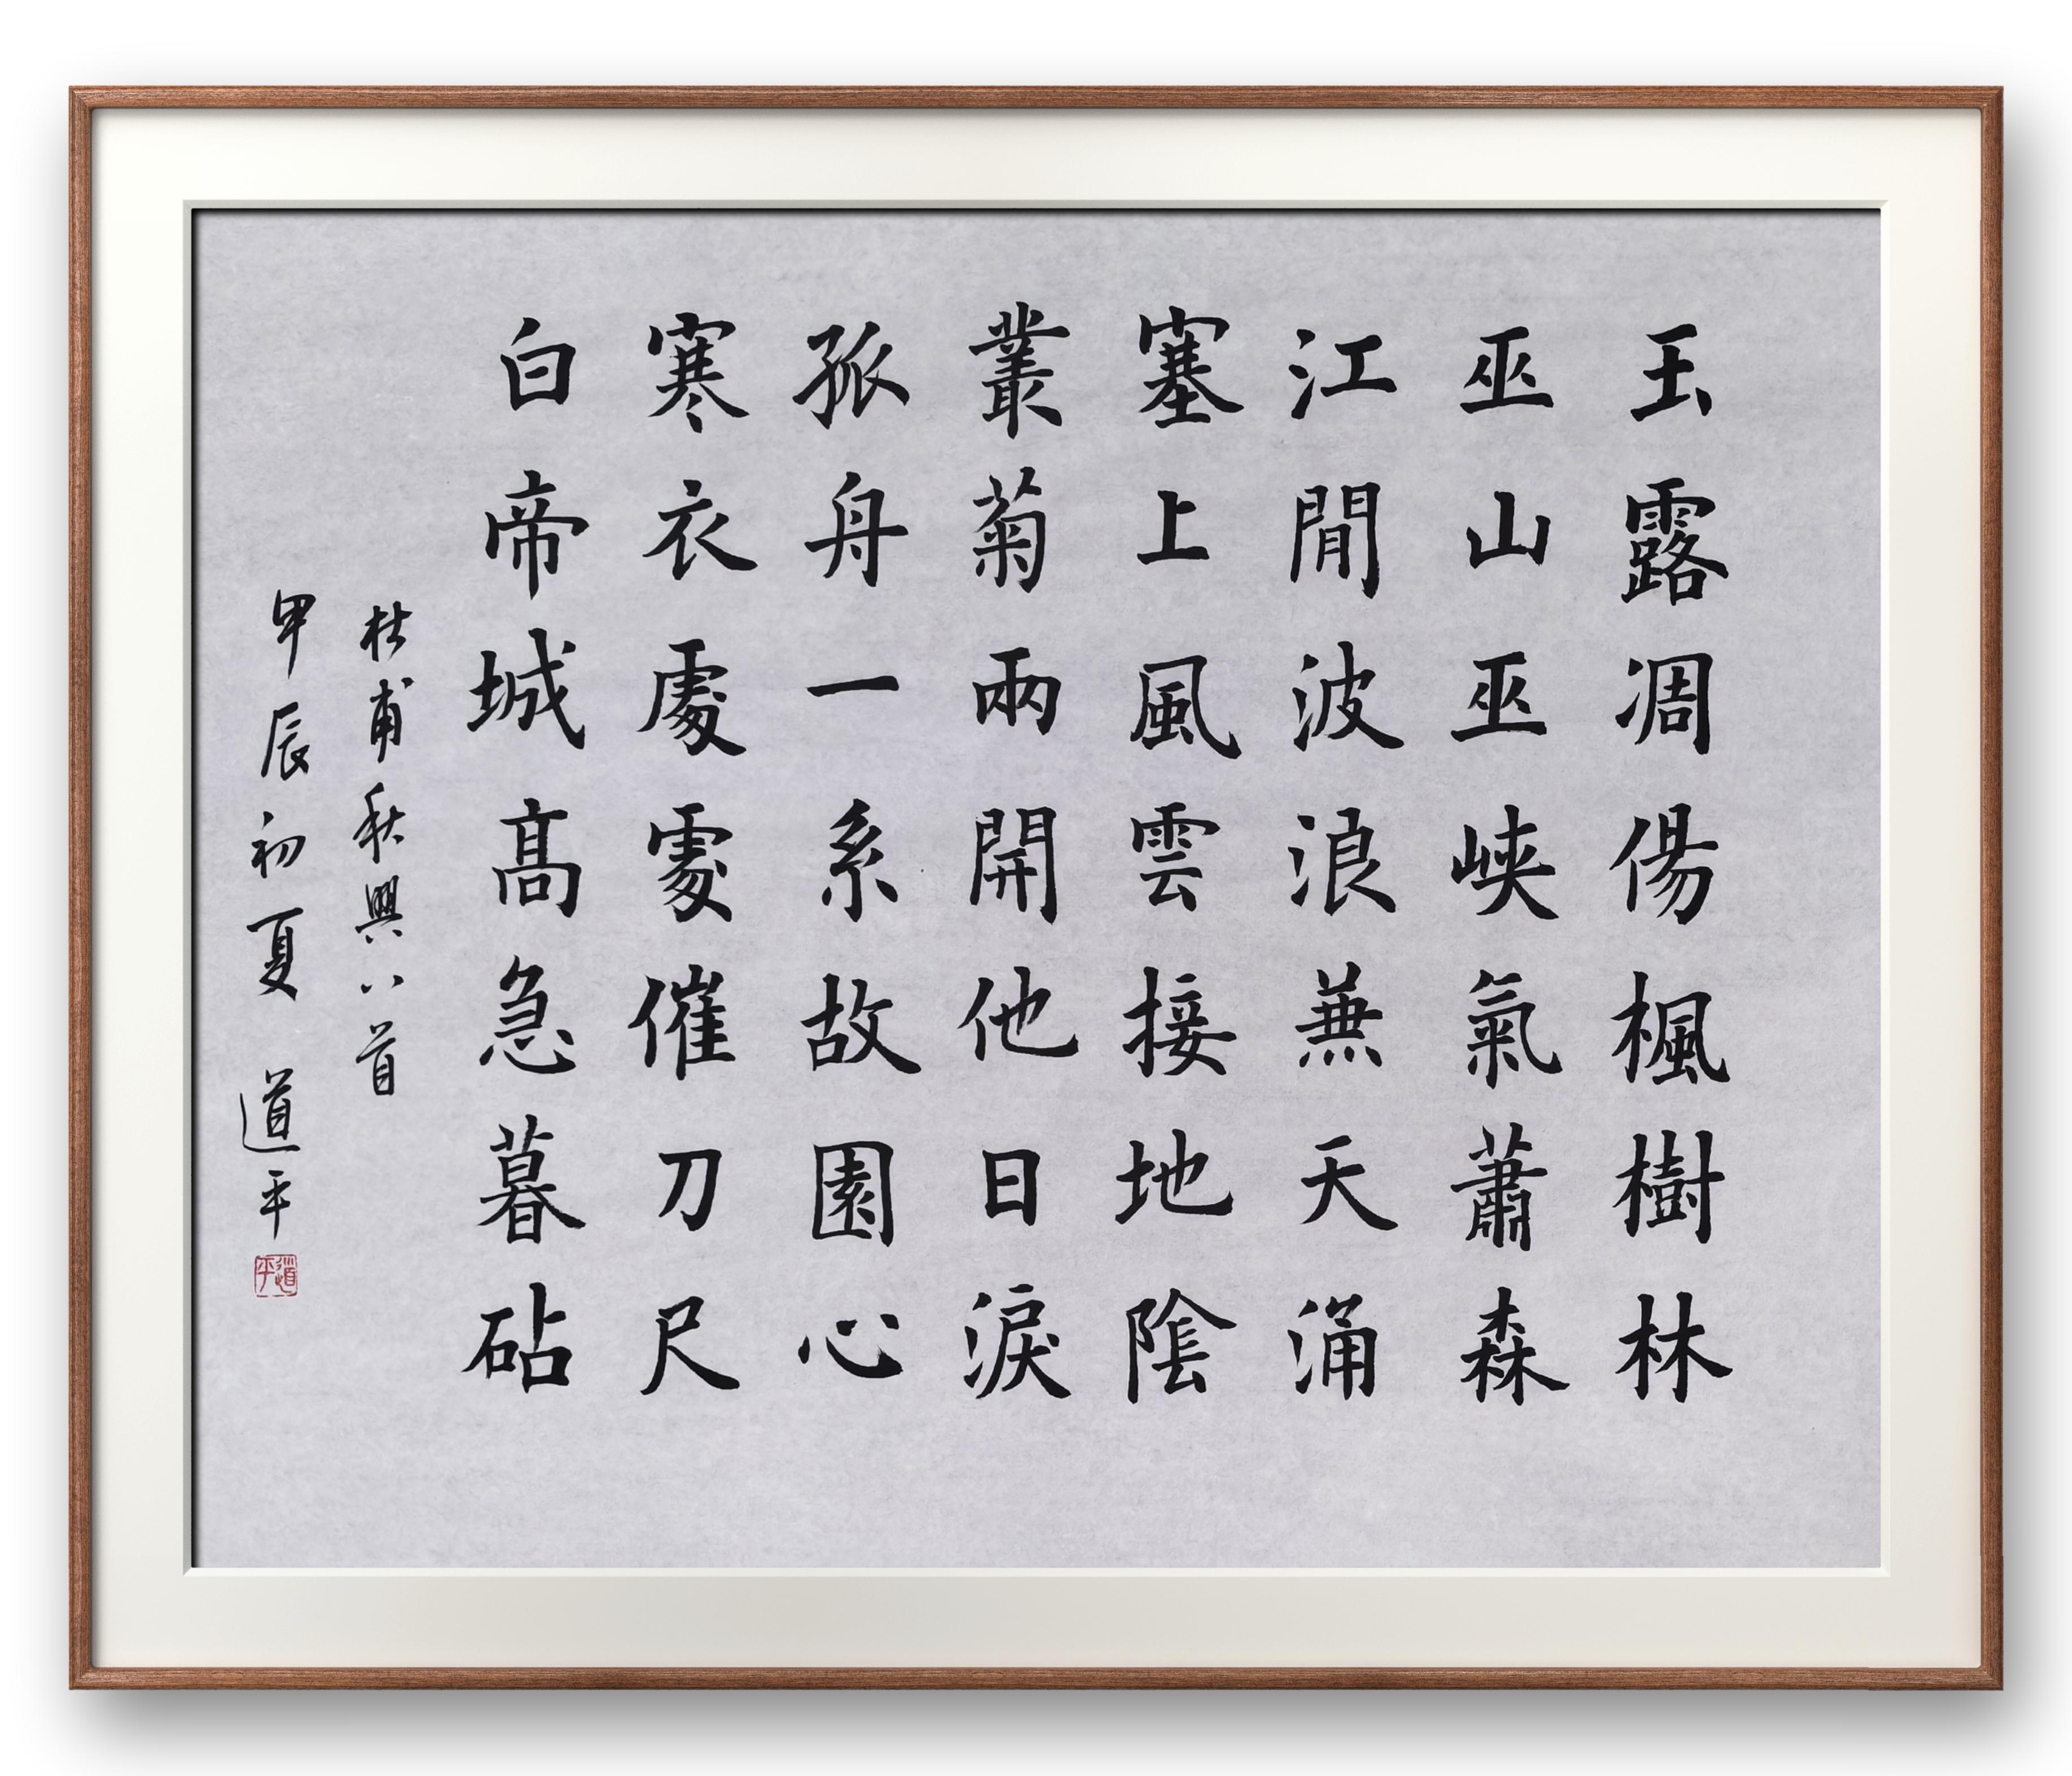 玉露凋傷楓樹林
巫山巫峽氣蕭森
江間波浪兼天涌
塞上風雲接地陰
叢菊兩開他日淚
孤舟一系故園心
寒衣處處催刀尺
白帝城高急暮砧
杜甫秋興八首
甲辰初夏 道平
道平